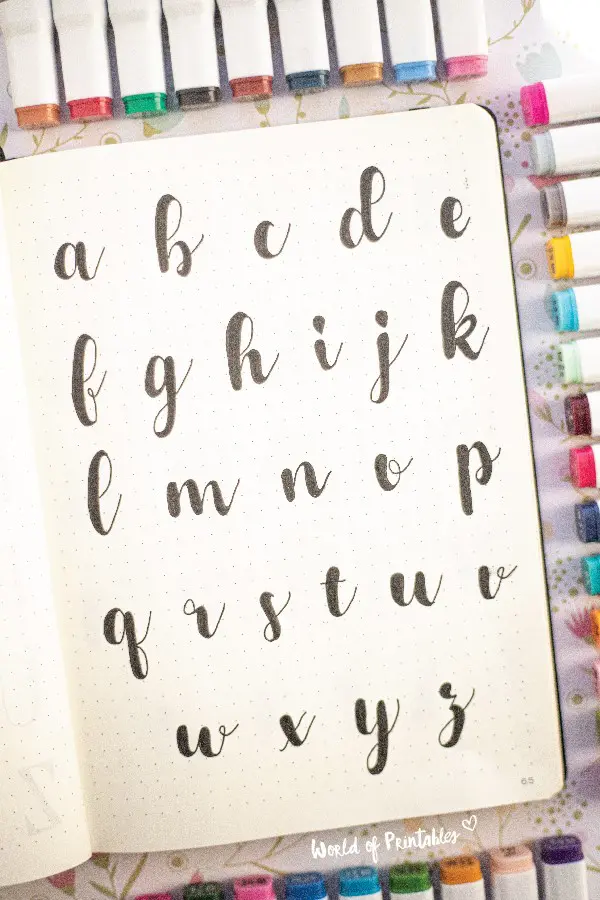 a b c d e
f g h i j k
l m n o p
q r s t u v
w x y z
65
World of Printables